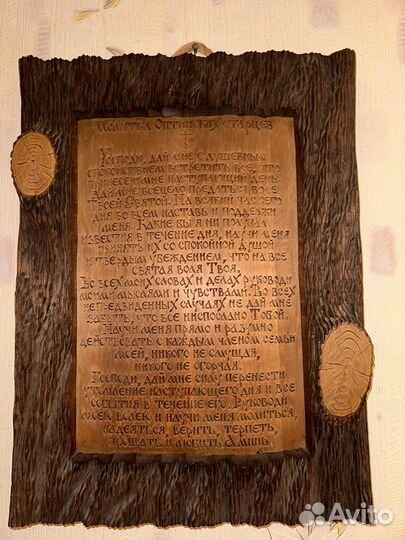 Молитва Оптинских старцев
Господи, дай мне с душевным
спокойствием встретить все, что
принесет мне наступающий день.
Дай мне всецело предаться воле
Твоей Святой. На всякий час сего
дня во всем наставь и поддержи
меня. Какие бы я ни получал
известия в течение дня, научи меня
принять их со спокойной душой
и твердым убеждением, что на все
святая воля Твоя.
Во всех моих словах и делах руководи
моими мыслями и чувствами. Во всех
непредвиденных случаях не дай мне
забыть, что все ниспослано Тобой.
Научи меня прямо и разумно
действовать с каждым членом семьи
моей, никого не смущая,
никого не огорчая.
Господи, дай мне силу перенести
утомление наступающего дня и все
события в течение его. Руководи
моею волею и научи меня молиться,
надеяться, верить, терпеть,
прощать и любить. Аминь.
Avito